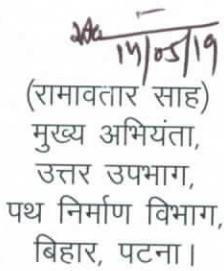 14/05/19
(रामावतार साह)
मुख्य अभियंता,
उत्तर उपभाग,
पथ निर्माण विभाग,
बिहार, पटना।